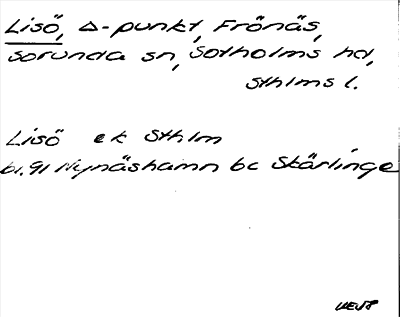 Lisö, Δ-punkt, Frönäs,
Sorunda sn, Sotholms hd,
Sthlms l.
Lisö ek Sthlm
bl. 91 Nynäshamn bc Skärlinge